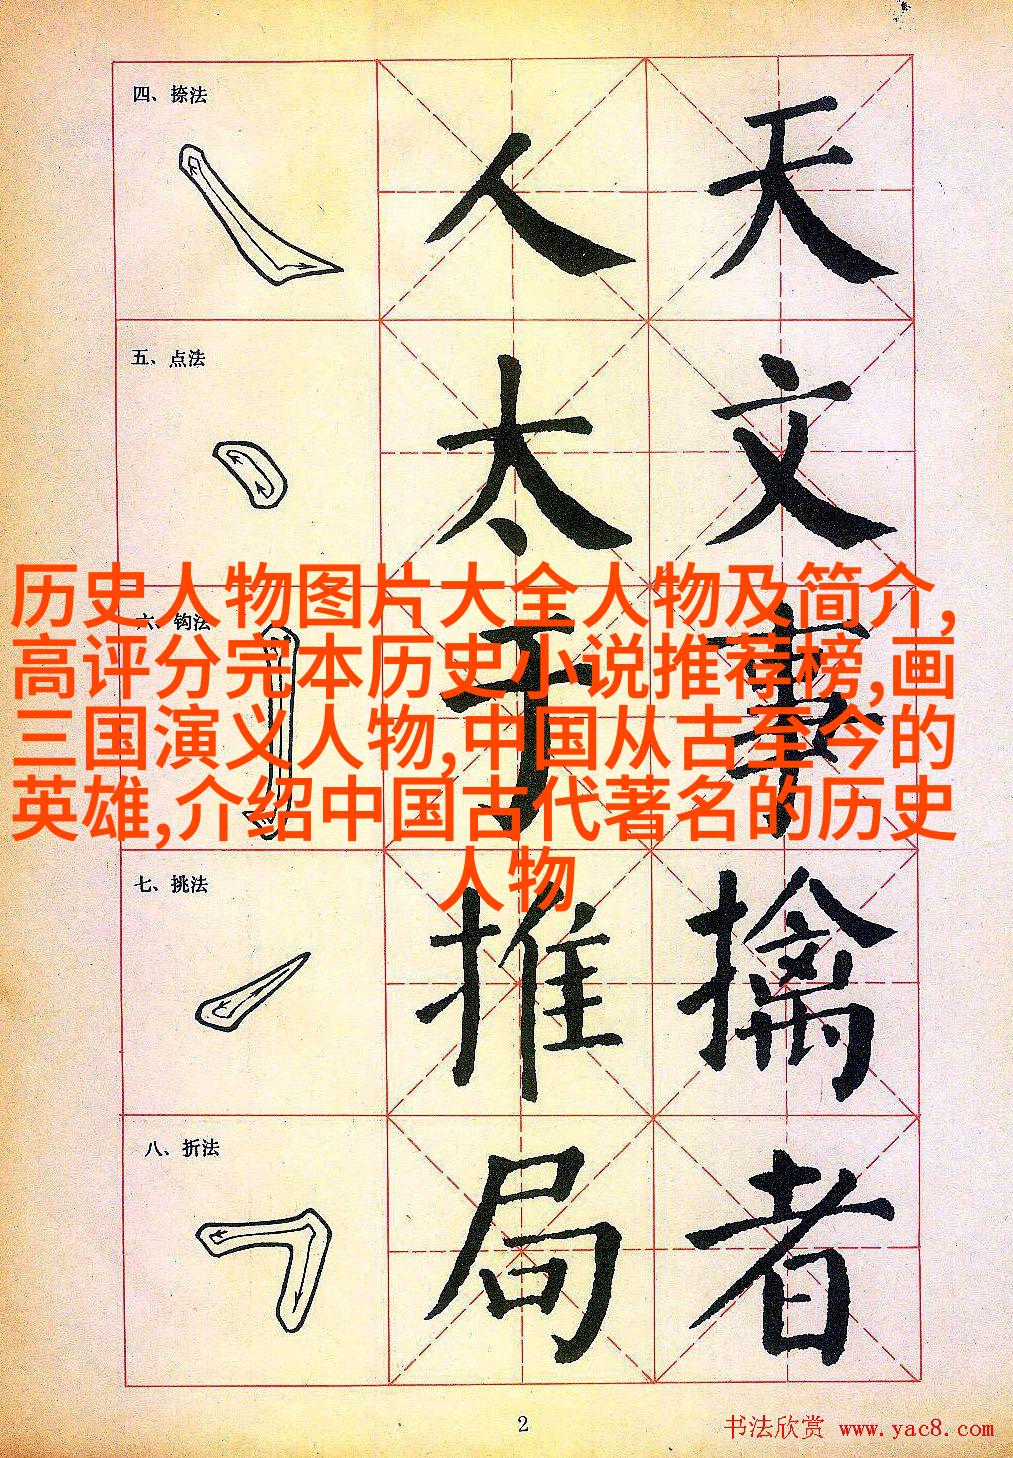 四、捺法
人 天
五、点法
太 文
历史人物图片大全人物及简介,
六、钩法
高评分完本历史小说推荐榜,画
三国演义人物,中国从古至今的
英雄,介绍中国古代著名的历史
人物
于 事
七、挑法
推 擒
八、折法
局 者
2
书法欣赏 www.yac8.com